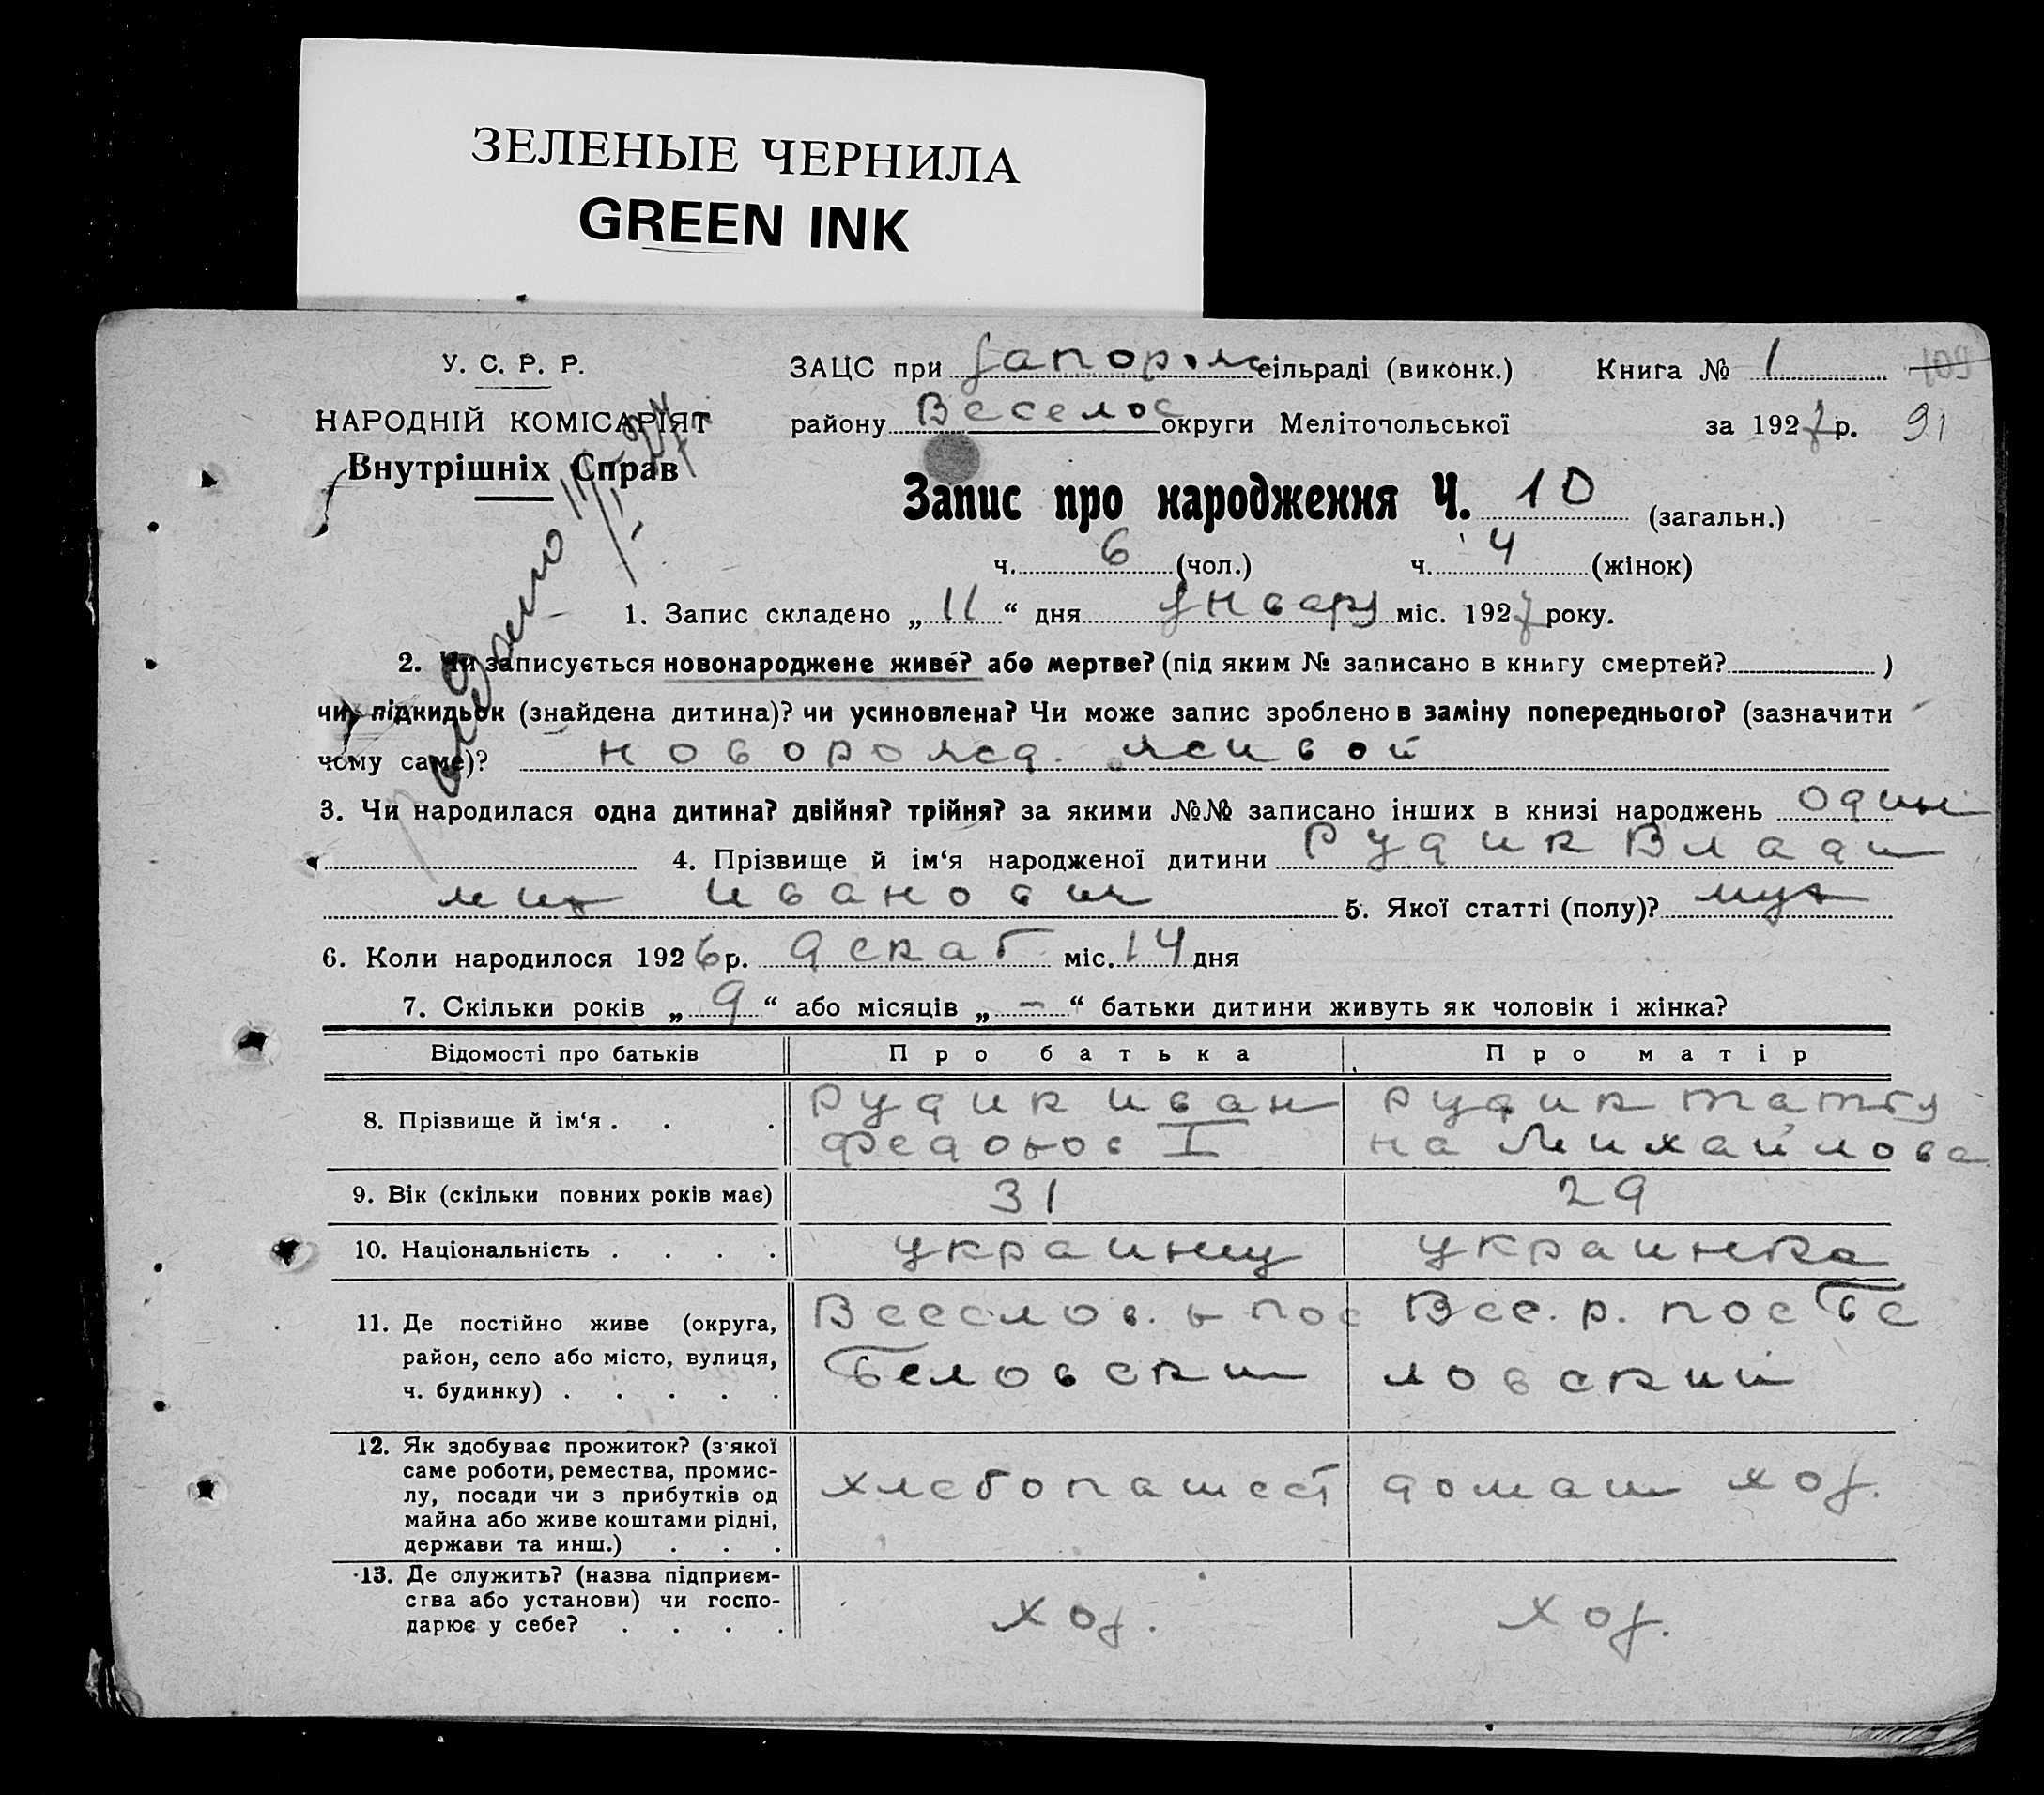 ЗЕЛЕНЫЕ ЧЕРНИЛА
GREEN INK
У. С. Р. Р.
НАРОДНІЙ КОМІСАРІЯТ
Внутрішніх Справ
ЗАЦС при Запорож сільраді (виконк.)
Книга № 1
109
району Веселое округи Мелітопольської
за 1927 р. 91
Запис про народження Ч. 10 (загальн.)
ч. 6 (чол.) ч. 4 (жінок)
1. Запис складено „ 11 “ дня январ міс. 1927 року.
2. Чи записується новонароджене живе? або мертве? (під яким № записано в книгу смертей? )
чи підкидьок (знайдена дитина)? чи усиновлена? Чи може запис зроблено в заміну попереднього? (зазначити
чому саме)?новорожд. живой
3. Чи народилася одна дитина? двійня? трійня? за якими №№ записано інших в книзі народжень один
4. Прізвище й ім‘я народженої дитини Рудик Влади
мир Иванович 5. Якої статті (полу)? муж
6. Коли народилося 1926 р. декаб міс. 14 дня
7. Скільки років „ 9 “ або місяців „ – “ батьки дитини живуть як чоловік і жінка?
Відомості про батьків Про батька Про матір
8. Прізвище й ім‘я . . .
Рудик Иван
Федоров I
Рудик Татья
на Михайлова
9. Вік (скільки повних років має) 31 29
10. Національність . . . . украинц украинка
11. Де постійно живе (округа,
район, село або місто, вулиця,
ч. будинку) . . . . .
Веселов. р пос
Беловски
Вес. р. пос Бе
ловский
12. Як здобуває прожиток? (з якої
саме роботи, ремества, промис-
лу, посади чи з прибутків од
майна або живе коштами рідні,
держави та инш.) . . .
хлебопашест домаш хоз.
13. Де служить? (назва підприєм-
ства або установи) чи госпо-
дарює у себе? . . . .
хоз. хоз.